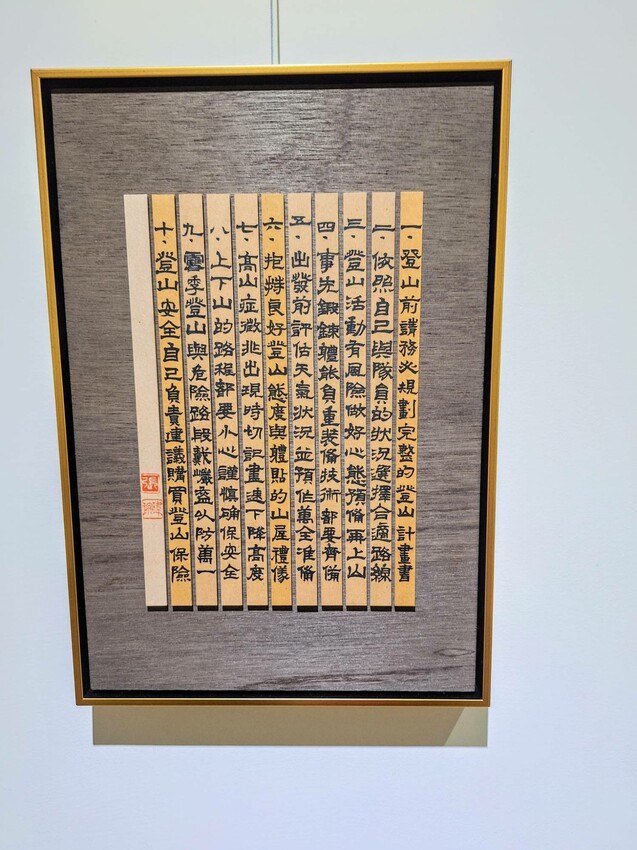 一、登山前請務必規劃完整的登山計畫書
二、依照自己與隊員的狀況選擇合適路線
三、登山活動有風險做好心態預備再上山
四、事先鍛鍊體能負重裝備技術都要齊備
五、出發前評估天氣狀況並預作萬全准備
六、抱持良好登山態度與體貼的山屋禮儀
七、高山症徵兆出現時切記盡速下降高度
八、上下山的路程都要小心謹慎确保安全
九、雪季登山與危險路段戴機盔以防萬一
十、登山安全自己負責建議購買登山保險